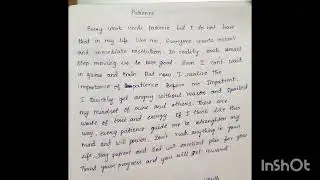 Patience
Every work needs patience but I do not have
that in my life like me. Everyone wants instant
and immediate resolution. In reality each small
step moving us to our goal. Even I can't wait
in queue and train. But now, I realize the
importance of Impatience. Before me Impatient.
I Quickly get angry without reason and spoiled
my mindset of mine and others. There are
waste of time and energy. If I think like this
way, every patience guide me to strengthen my
mind and will power. Don't rush anything in your
life. Stay patient and God will excellent plan for your
Trust your progress and you will get reward
InShOt